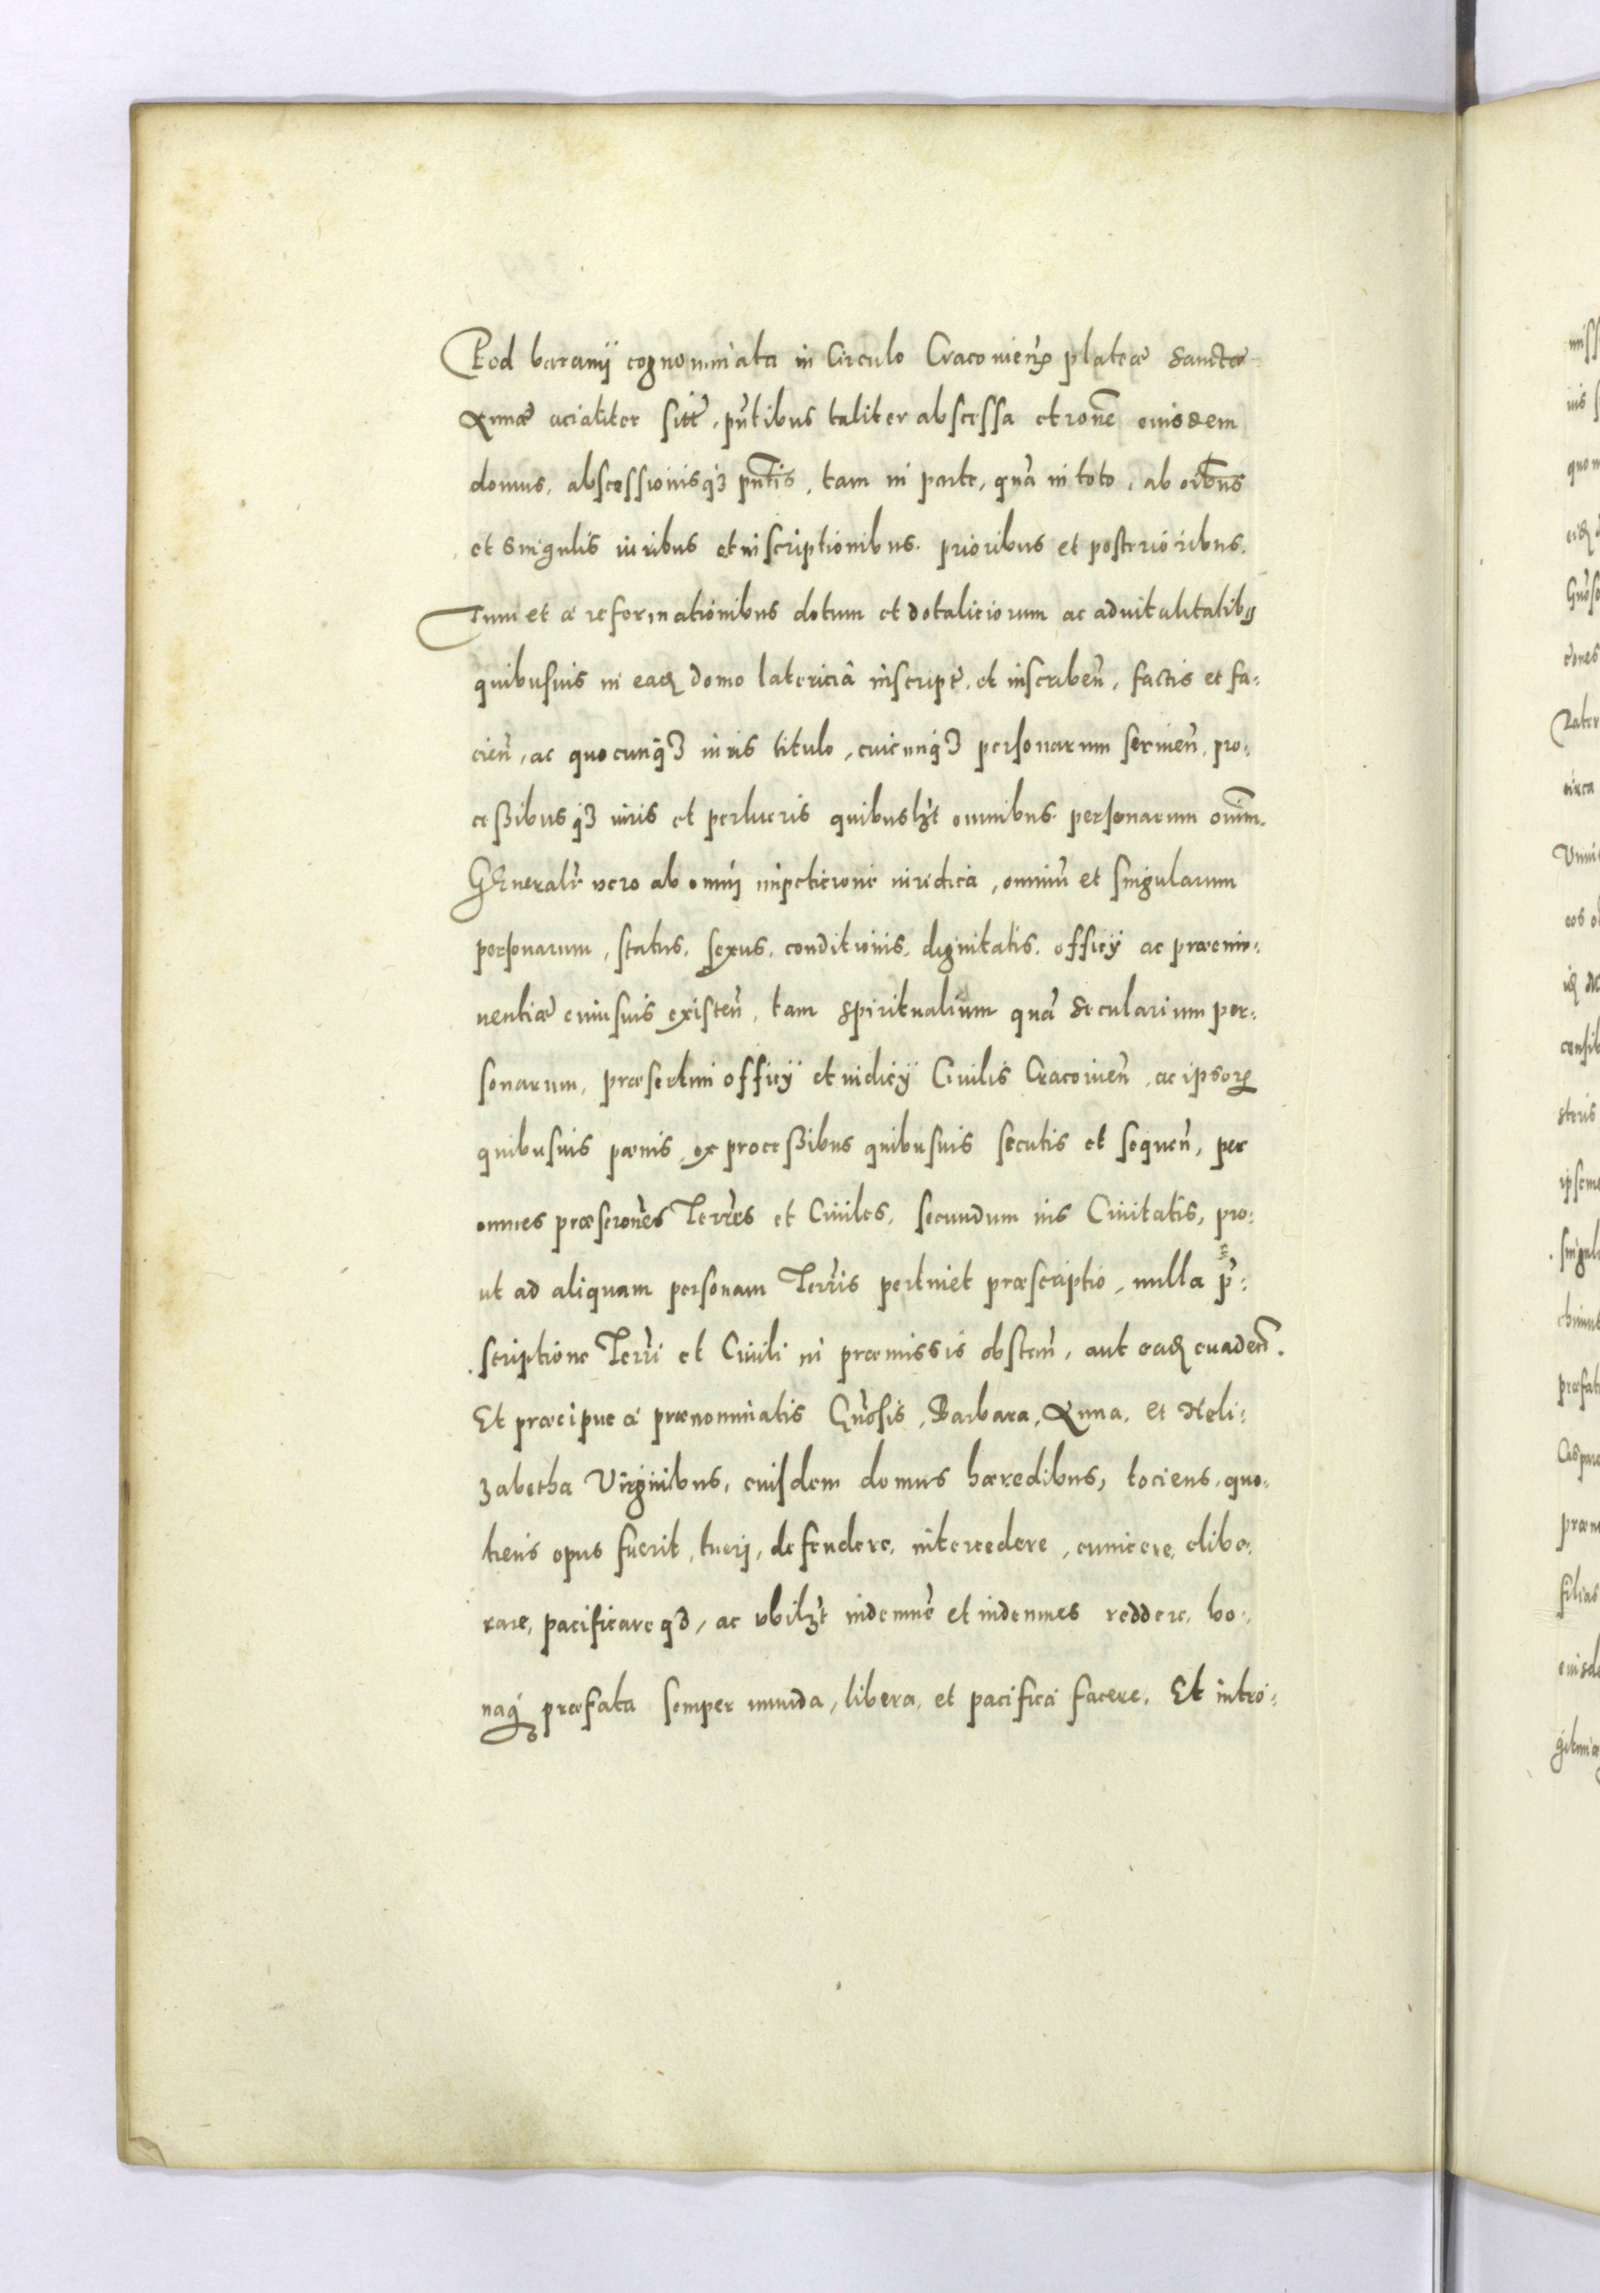 Pod baranÿ cognominata in Circulo Cracovieñ plateæ Sanctæ
Annæ acialiter sitt̃, pñtibus taliter abscessa et rone᷉ eiusdem
domus, abscessionisqꝫ pñtis, tam in parte, quã in toto, ab oi᷉bus
et singulis iuribus et inscriptionibus prioribus et posterioribus.
Tum et à reformationibus dotum et dotaliciorum ac advitalitatibꝰ
quibusuis in eadẽ domo latericiâ inscript̃, et inscribeñ, factis et fa:
cieñ, ac quocunqꝫ iuris titulo, cuicunqꝫ personarum servieñ, pro:
ceßibusqꝫ iuris et perlucris quibuslꝫt omnibus personarum oi᷉um.
GEneralr̃ vero ab omnij impeticione iuridica, omniũ et singularum
personarum, status, sexus, conditionis, dignitatis, officÿ ac præemi:
nentiæ cuiusuis existeñ, tam Spiritualium quã Secularium per:
sonarum, præsertim officÿ et iudicÿ Civilis Cracovieñ, ac ipsoꝝ
quibusuis pænis, ex proceßibus quibusuis secutis et sequeñ, per
omnes præscrone᷉s Terr̃es et Civiles, secundum ius Civitatis, pro:
ut ad aliquam personam Terr̃is pertinet præscriptio, nulla p̃:
scriptione Terr̃i et Civili in præmissis obstañ, aut eadẽ evadeñ.
Et præcipue à prænominatis Gñosis, Barbara, Anna, et Heli:
zabetha Virginibus, eiusdem domus hæredibus, tociens, quo:
tiens opus fuerit, tuerj, defendere, intercedere, evincere, elibe:
rare, pacificareqꝫ, ac ubilꝫt indemne᷉ et indemnes reddere, bo:
naqꝫ præfata semper munda, libera, et pacifica facere. Et intro: